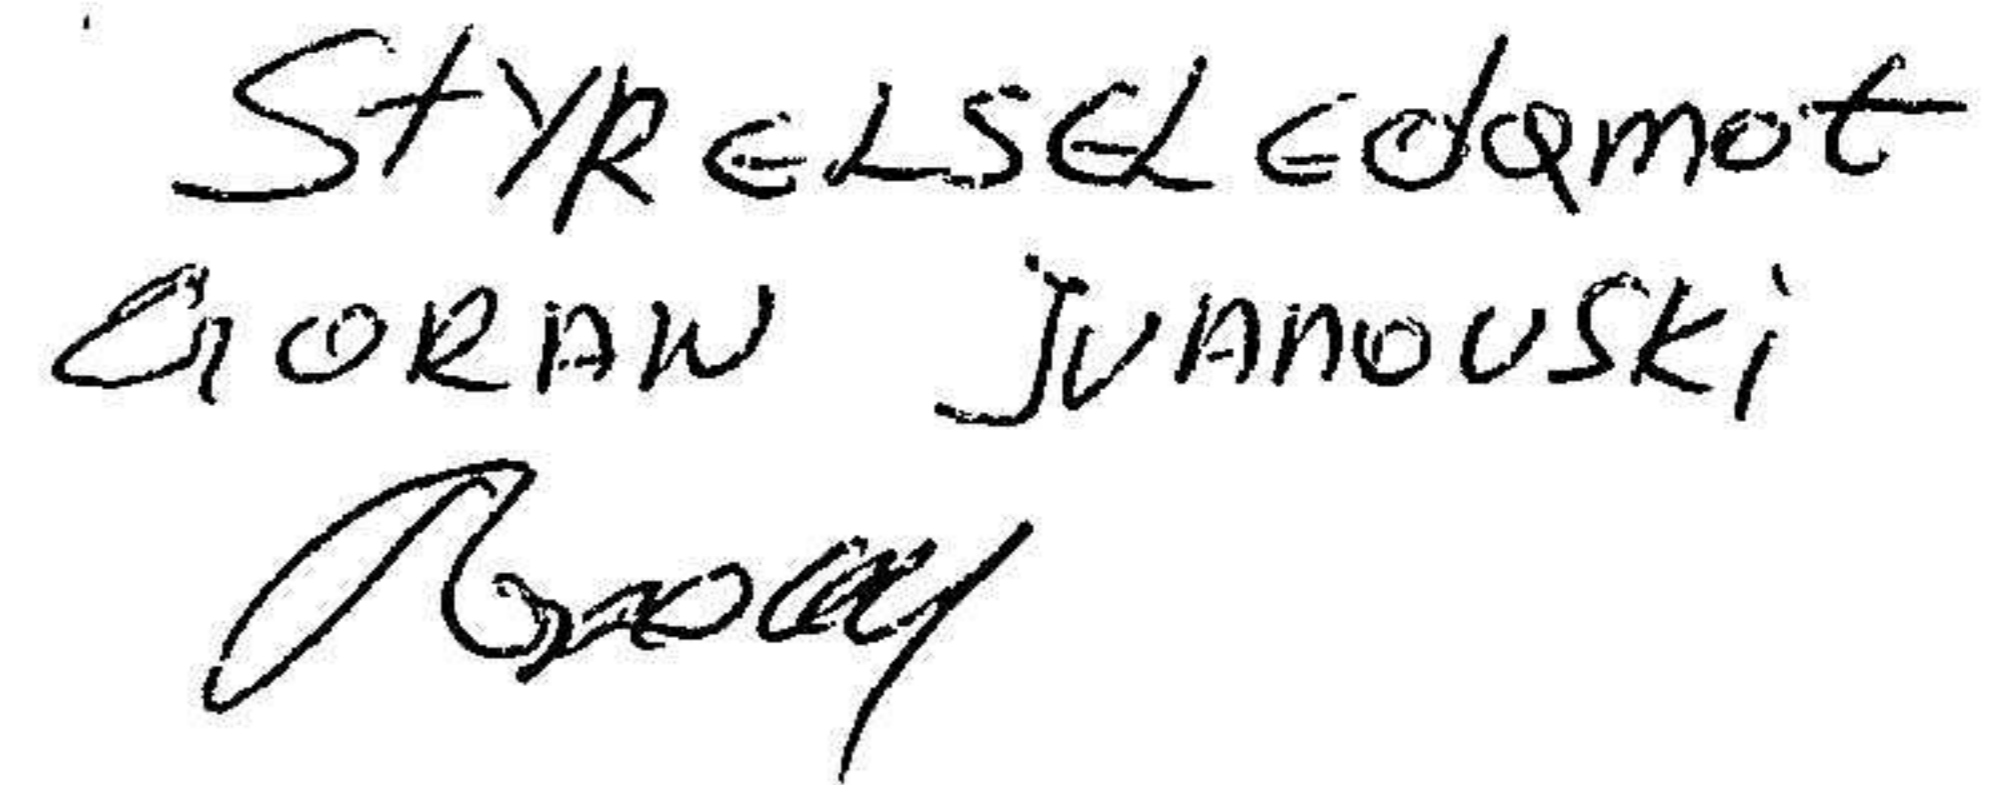 STYRELSELEdamot
GORAN IVANOVSKi